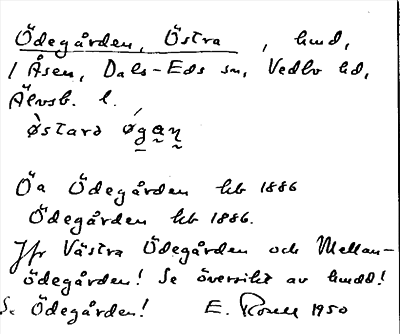 Ödegården, Östra, hmd,
/ Åsen, Dals-Eds sn, Vedbo hd,
Älvsb. l.
østarə øga̰ṇ
Öa Ödegården kb 1886
Ödegården kb 1886.
Jfr Västra Ödegården och Mellan-
ödegården! Se översikt av hmdd!
Se Ödegården! E. 1950